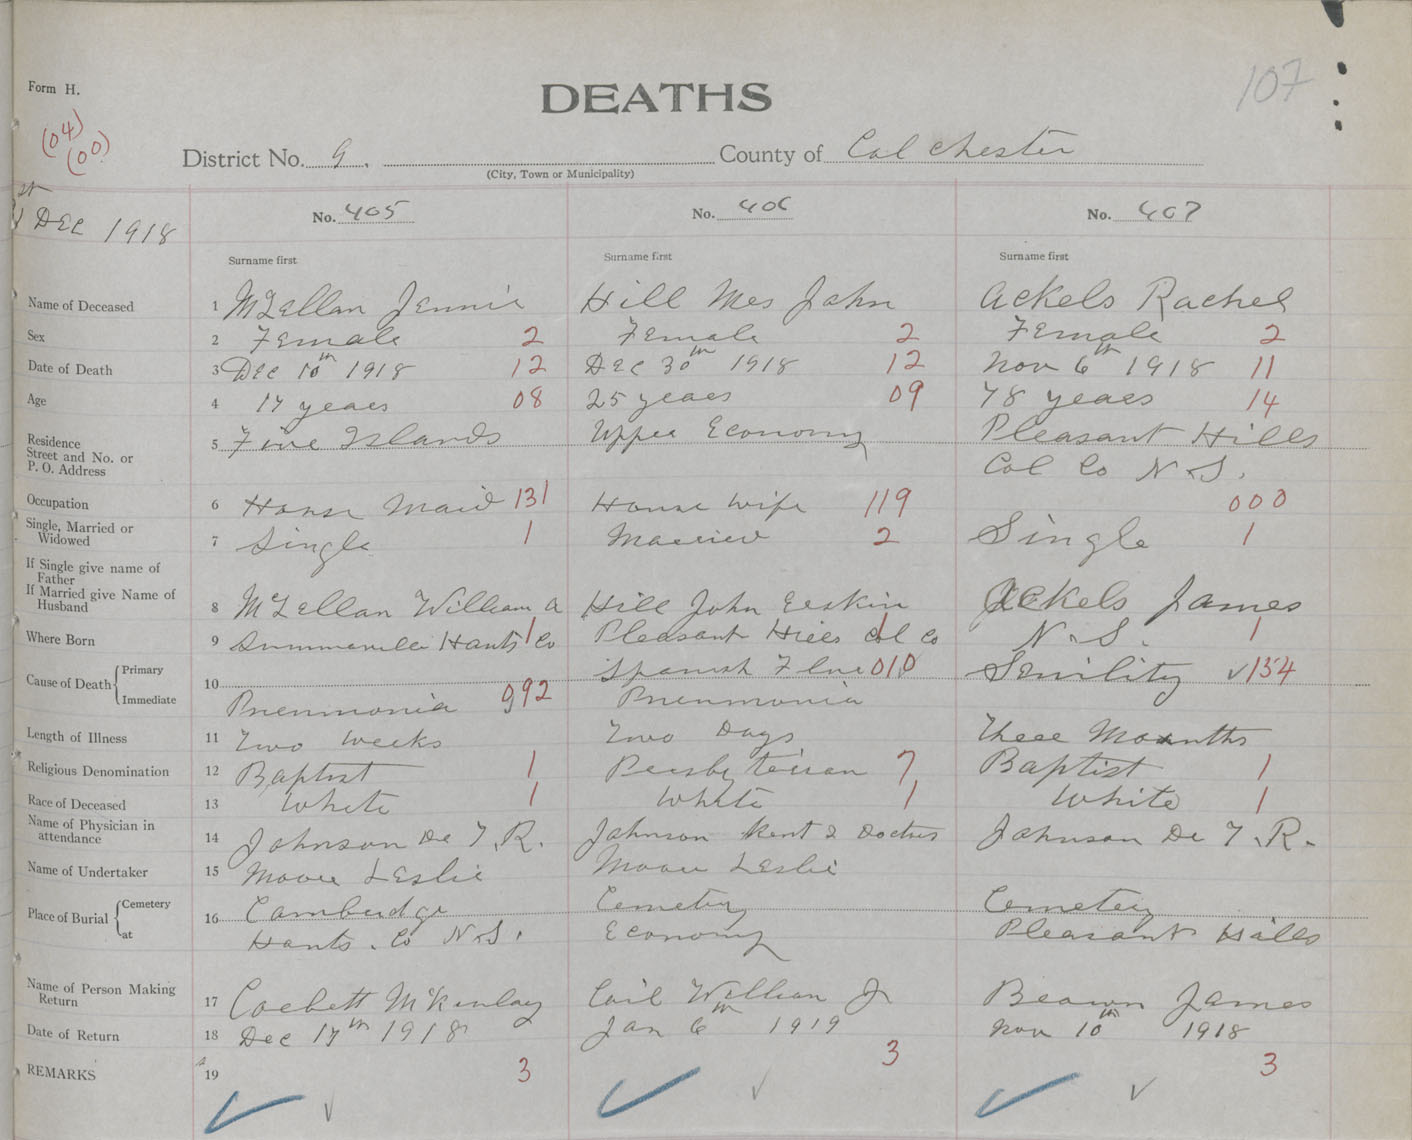 107
Form H.
DEATHS
(04)
(00)
District No. 9. County of Colchester
(City, Town or Municipality)
st
DEC 1918
No. 405 No. 406 No. 407
Surname first Surname first Surname first
Name of Deceased 1 McLellan Jennie Hill Mrs John Ackels Rachel
Sex 2 Female 2 Female 2 Female 2
Date of Death 3 Dec 10th 1918 12 Dec 30th 1918 12 Nov 6th 1918 11
Age 4 17 years 08 25 years 09 78 years 14
Residence 5 Five Islands Upper Economy Pleasant Hills
Street and No. or
P. O. Address Col Co N.S.
Occupation 6 House Maid 131 House wife 119 000
Single, Married or
Widowed 7 Single 1 Married 2 Single 1
If Single give name of
Father
If Married give Name of
Husband 8 McLellan William A Hill John Erskin Ackels James
Where Born 9 Summerville Hants Co 1 Pleasant Hills Col Co 1 N.S. 1
Cause of Death Primary 10 Spanish Flue 010 Senility ✓154
Immediate Pneumonia 992 Pneumonia
Length of Illness 11 Two weeks Two Days Three Months
Religious Denomination 12 Baptist 1 Presbyterian 7 Baptist 1
Race of Deceased 13 White 1 White 1 White 1
Name of Physician in
attendance 14 Johnson Dr T. R. Johnson Kent 2 Doctors Johnson Dr T. R.
Name of Undertaker 15 Moore Leslie Moore Leslie
Place of Burial Cemetery 16 Camberdge Cemetery Cemetery
at Hants. Co N.S. Economy Pleasant Hills
Name of Person Making
Return 17 Corbett McKinlay William Jr Brown James
Date of Return 18 Dec 17th 1918 Jan 6th 1919 Nov 10th 1918
REMARKS 19 3 3 3